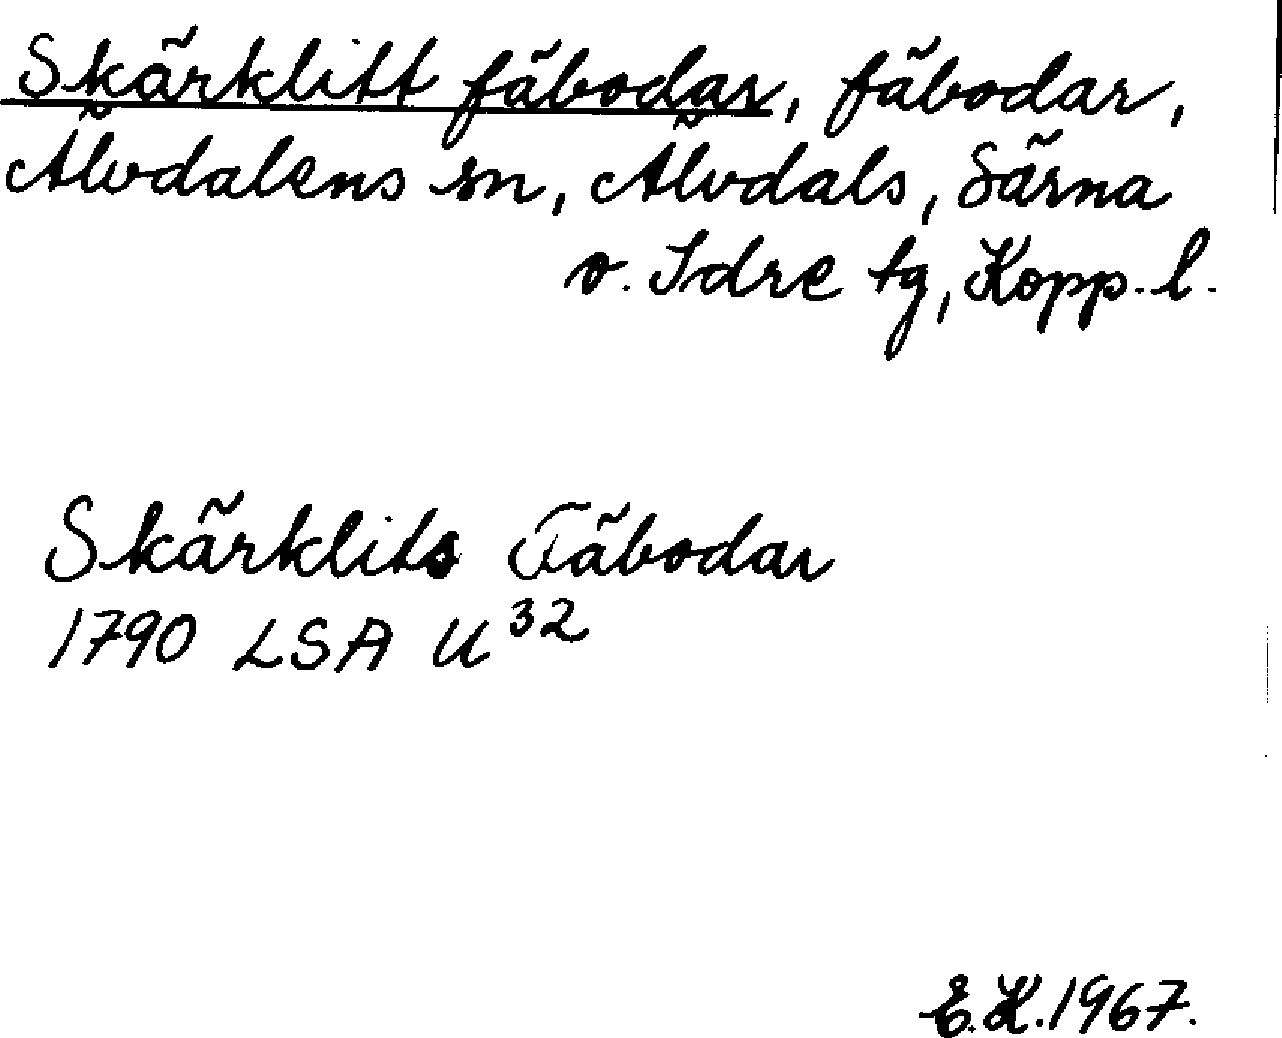 Skärklitt fäbodar, fäbodar,
Älvdalens sn, Älvdals, Särna
o. Idre tg, Kopp. l.
Skärklits Fäbodar
1790 LSA U 32
E.K. 1967.